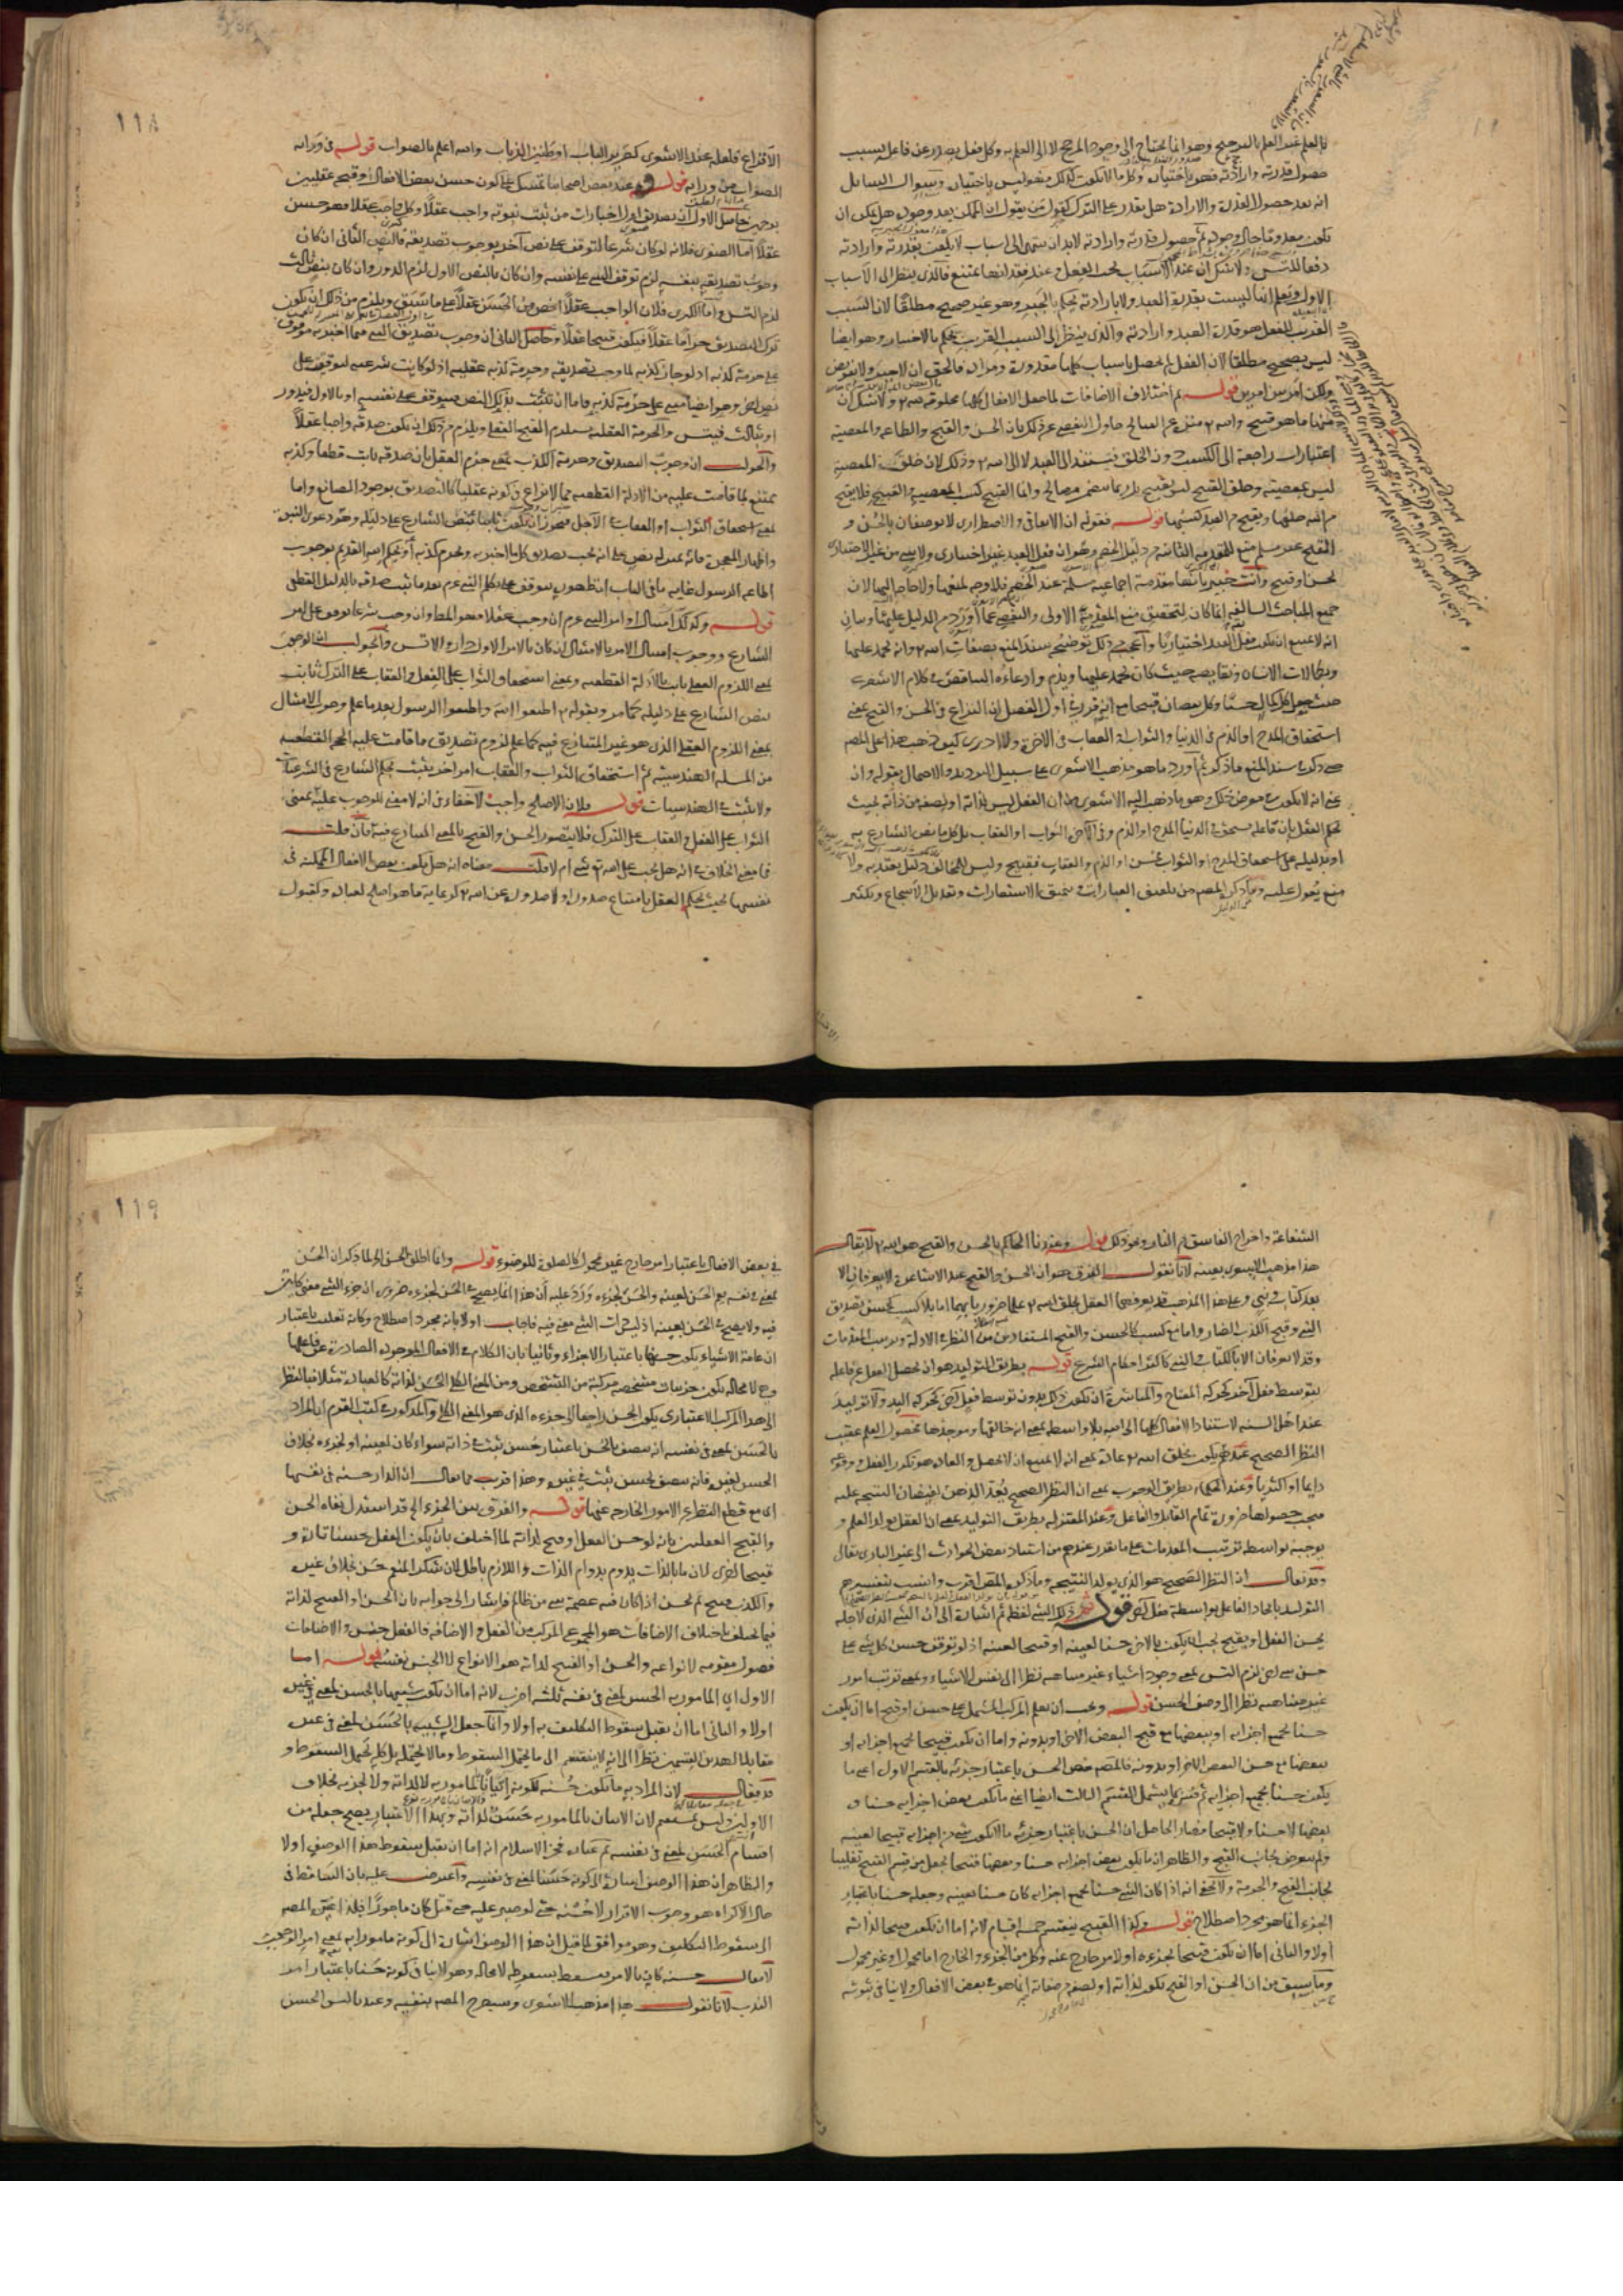 بالعلم غير العلم بالترجيح وهو انما يحتاج الى وجود المرجح لا الى العلم به وكل فعل يصدر عن فاعل بسبب
حصول قدرته وارادته فهو باختياره وكل ما لا يكون كذلك فهو ليس باختياره وسؤال السائل
انه بعد حصول القدرة والارادة هل يقدر على الترك كقول من يقول ان الممكن بعد وجوده هل يمكن ان
يكون معدوما حال وجوده ثم حصول قدرته وارادته لا بد ان ينتهى الى اسباب لا يكون بقدرته وارادته
دفعا للتس ولا شك ان عند الاسباب يجب الفعل وعند فقدانها يمتنع فالذى ينظر الى الاسباب
الاول ويعلم انها ليست بقدرة العبد ولا بارادته يحكم بالجبر وهو غير صحيح مطلقا لان السبب
القريب للفعل هو قدرة العبد وارادته والذى ينظر الى السبب القريب يحكم بالاختيار وهو ايضا
ليس بصحيح مطلقا لان الفعل لم يحصل باسباب كلها مقدورة ومراده فالحق ان لا جبر ولا تفويض
ولكن امر بين امرين قوله ثم اختلاف الاضافات لما جعل الافعال كلها مخلوقه لله ولا شك ان
منها ما هو قبيح والله منزه عن القبائح حاول التفصى عن ذلك بان الحسن والقبح والطاعه والمعصية
اعتبارات راجعة الى الكسب دون الخلق فيستند الى العبد لا الى الله وذلك لان خلق المعصية
ليس بمعصيته وخلق القبيح ليس بقبيح بل ربما يتضمن مصالح وانما القبيح كسب المعصية والقبيح فلا يقبح
من الله خلقها ويقبح من العبد كسبها قوله فقوله ان الاتفاقى والاضطرارى لا يوصفان بالحسن و
القبح غير مسلم منع للمقدمة الثانية من دليل الخصم وهو ان فعل العبد غير اختيارى ولا شئ من غير الاختيارى
بحسن وقبيح وانت خبير بانها مقدمة اجماعية مسلمة عند الخصم فلا وجه لمنعها ولا حاجة اليها لان
جميع المباحث السالفه انما كان لتحقيق منع المقدمة الاولى والتفصى عما اورد من الدليل عليها وبيان
انه لا يمتنع ان يكون فعل العبد اختياريا واعجب من ذلك توضيحه سند المنع بصفات الله وانه يحمد عليها
وبكمالات الانسان ونقايصه حيث كان يحمد عليها ويذم وادعاؤه التناقض فى كلام الاشعرى
حيث جعل كل كمال حسنا وكل نقصان قبيحا مع انه قرر فى اول الفصل ان النزاع فى الحسن والقبح بمعنى
استحقاق المدح او الذم فى الدنيا والثواب او العقاب فى الاخرة ولا ادرى كيف ذهب هذا على المصم
حتى ذكر فى سند المنع ما ذكر ثم اورد ما هو مذهب الاشعرى على سبيل الترديد والاحتمال بقوله وان
عنى انه لا يكون فى معرض ذلك وهو ما ذهب اليه الاشعرى من ان الفعل ليس لذاته او لصفة من ذاته بحيث
يحكم العقل بان فاعله يستحق فى الدنيا المدح او الذم وفى الآخرة الثواب او العقاب بل كل ما نص الشارع به
او بدليله على استحقاق المدح او الثواب فحسن او الذم والعقاب فقبيح وليس للمخالف دليل يعتد به ولا
منع يعول عليه وما ذكره المصم من تلفيق العبارات وتنميق الاستعارات وتعديل الاسجاع وتكثير
118
الاقتراع فلعله عند الاشعرى كصرير الباب او طنين الذباب والله اعلم بالصواب قوله فى ورائه
الصواب من ورائه قوله وعند بعض اصحابنا تمسك على كون حسن بعض الافعال وقبحه عقليين
بوجهين حاصل الاول ان تصديق اول اخبارات من ثبت نبوته واجب عقلا وكل واجب عقلا فهو حسن
عقلا اما الصغرى فلانه لو كان شرعا لتوقف على نص آخر يوجب تصديقه فالنص الثانى ان كان
وجوب تصديقه بنفسه لزم توقف الشئ على نفسه وان كان بالنص الاول لزم الدور وان كان بنص ثالث
لزم التس واما الكبرى فلان الواجب عقلا اخص من الحسن عقلا على ما سبق ويلزم من ذلك ان يكون
ترك التصديق حراما عقلا فيكون قبيحا عقلا وحاصل الثانى ان وجوب تصديق النبى فيما اخبر به موقوف
على حرمة كذبه اذ لو جاز كذبه لما وجب تصديقه وحرمة كذبه عقليه اذ لو كانت شرعيه لتوقف على
نص اخر وهو ايضا مبنى على حرمة كذبه فاما ان تثبت بذلك النص فيتوقف على نفسه او بالاول فيدور
او بثالث فيتس والحرمة العقلية يستلزم القبح العقلى ويلزم من ذلك ان يكون صدقه واجبا عقلا
والجواب ان وجوب التصديق وحرمة الكذب بمعنى جزم العقل بان صدقه ثابت قطعا وكذبه
ممتنع لما قامت عليه من الادلة القطعيه مما لا نزاع فى كونه عقليا كالتصديق بوجود الصانع واما
بمعنى استحقاق الثواب او العقاب فى الآجل فيجوز ان يكون ثابتا بنص الشارع على دليله وهو دعوى النبوة
واظهار المعجزة فانه بمنزله نص على انه يجب تصديق كل ما اخبر به ويحرم كذبه او بحكم الله القديم بوجوب
اطاعة الرسول غايه ما فى الباب ان ظهوره يتوقف على تكلم النبى عم بعد ما ثبت صدقه بالدليل القطعى
قوله وكذلك امتثال اوامر النبى عم ان وجب عقلا فهو المط وان وجب شرعا توقف على امر
الشارع ووجوب امتثال الامر بالامتثال ان كان بالامر الاول دار والا تس والجواب ان الوجوب
بمعنى اللزوم العقلى ثابت بالادلة القطعيه وبمعنى استحقاق الثواب على الفعل والعقاب على الترك ثابت
بنص الشارع على دليله كما مر وبقوله اطيعوا الله واطيعوا الرسول بعد ما علم وجوب الامتثال
بمعنى اللزوم العقلى الذى هو غير المتنازع فيه كما علم لزوم تصديق ما قامت عليه الحجج القطعيه
من المسئله الهندسيه ثم استحقاق الثواب والعقاب امر اخر يثبت بحكم الشارع فى الشرعيات
ولا يثبت فى الهندسيات قوله فلان الاصلح واجب لا خفاء فى انه لا معنى للوجوب عليه بمعنى
الثواب على الفعل والعقاب على الترك فلا يتصور الحسن والقبح بالمعنى المتنازع فيه فان قلت
فما معنى الخلاف فى انه هل يجب على الله شئ ام لا قلت معناه انه هل يكون بعض الافعال الممكنه فى
نفسها بحيث يحكم العقل بامتناع صدوره او لا صدوره عن الله كرعاية ما هو اصلح لعباده وكقبول
الشفاعة واخراج الفاسق من النار ونحو ذلك قوله وعندنا الحاكم بالحسن والقبح هو الله لا يقال
هذا مذهب الاشعرى بعينه لانا نقول الفرق هو ان الحسن والقبح عند الاشاعرة لا يعرفان الا
بعد كتاب ونبى وعلى هذا المذهب قد يعرفهما العقل بخلق الله علما ضروريا بهما اما بلا كسب كحسن تصديق
النبى وقبح الكذب الضار واما مع كسب كالحسن والقبح المستفادين من النظر فى الادلة وترتيب المقدمات
وقد لا يعرفان الا بالكتاب والنبى كاكثر احكام الشرع قوله بطريق التوليد هو ان يحصل الفعل عن فاعله
بتوسط فعل آخر كحركة المفتاح والمباشرة ان يكون ذلك بدون توسط فعل اخر كحركة اليد ولا توليد
عند اهل السنه لاستناد الافعال كلها الى الله بلا واسطه بمعنى انه خالقها وموجدها فحصول العلم عقيب
النظر الصحيح عندهم يكون بخلق الله عادة بمعنى انه لا يمتنع ان لا يحصل والعاده هو تكرر الفعل ووقوعه
دايما او اكثريا وعند الحكماء بطريق الوجوب بمعنى ان النظر الصحيح يعد الذهن لفيضان النتيجه عليه
فيجب حصولها ضرورة تمام القابل والفاعل وعند المعتزله بطريق التوليد بمعنى ان العقل يولد العلم و
يوجبه بواسطه ترتيب المقدمات على ما تقرر عندهم من استناد بعض الحوادث الى غير البارى تعالى
وقد يقال ان النظر الصحيح هو الذى يولد النتيجه وما ذكره المص اقرب وانسب بتفسيرهم
التوليد بايجاد الفاعل بواسطة فعل اخر قوله ثم ذلك الشئ لفظ ثم اشارة الى ان الشئ الذى لاجله
يحسن الفعل او يقبح يجب ان يكون بالاخره حسنا لعينه او قبيحا لعينه اذ لو توقف حسن كل شئ على
حسن شئ اخر لزم التس بمعنى وجود اشياء غير متناهيه نظرا الى نفس الاشياء وبمعنى ترتب امور
غير متناهيه نظرا الى وصف الحسن قوله ويجب ان يعلم المركب المشتمل على حسن او قبيح اما ان يكون
حسنا بجميع اجزائه او ببعضها مع قبح البعض الاخر او بدونه واما ان يكون قبيحا بجميع اجزائه او
ببعضها مع حسن البعض الاخر او بدونه فالمص خص الحسن باعتبار جزئه بالقسم الاول اعنى ما
يكون حسنا بجميع اجزائه ثم فسره بما يشمل القسم الثالث ايضا اعنى ما يكون بعض اجزائه حسنا و
بعضها لا حسنا ولا قبيحا فصار الحاصل ان الحسن باعتبار جزئه ما لا يكون شئ من اجزائه قبيحا لعينه
ولم يتعرض لجانب القبح والظاهر ان ما يكون بعض اجزائه حسنا وبعضها قبيحا يجعل من قسم القبيح تغليبا
لجانب القبح والحرمة ولا يخفى انه اذا كان الشئ حسنا بجميع اجزائه كان حسنا بعينه وجعله حسنا باعتبار
الجزء انما هو مجرد اصطلاح قوله وكذا القبيح ينقسم خمسة اقسام لانه اما ان يكون قبيحا لذاته
اولا والثانى اما ان يكون قبيحا لجزءه او لامر خارج عنه وكل من الجزء والخارج اما محمول او غير محمول
وما سبق من ان الحسن او القبح يكون لذاته او لصفة من صفاته انما هو فى بعض الافعال ولا ينافى ثبوته
119
فى بعض الافعال باعتبار امر خارج غير محمول كالصلوة للوضوء قوله وانما اطلق الحسن الخ لما ذكر ان الحسن
بمعنى فى نفسه يعم الحسن لعينه والحسن لجزءه ورد عليه ان هذا انما يصح فى الحسن لجزءه ضرورة ان جزء الشئ معنى كائن
فيه ولا يصح فى الحسن لعينه اذ ليس ذات الشئ معنى فيه فاجاب اولا بانه مجرد اصطلاح وكانه تغليب باعتبار
ان عامة الاشياء يكون حسنها باعتبار الاجزاء وثانيا بان الكلام فى الافعال الموجوده الصادرة عن فاعلها
وهى لا محاله يكون جزئيات مشخصه مركبة من التشخص ومن المعنى الكلى الحسن لذاته كالعبادة مثلا فبالنظر
الى هذا المركب الاعتبارى يكون الحسن راجعا الى جزءه الذى هو المعنى الكلى والمذكور فى كتب القوم ان المراد
بالحسن لمعنى فى نفسه انه يتصف بالحسن باعتبار حسن ثبت فى ذاته سواء كان لعينه او لجزءه بخلاف
الحسن لغيره فانه يتصف بحسن ثبت فى غيره وهذا قريب مما يقال ان الدار حسنه فى نفسها
اى مع قطع النظر عن الامور الخارجه عنها قوله والفرق بين الجزء الخ قد استدل نفاة الحسن
والقبح العقليين بانه لو حسن الفعل او قبح لذاته لما اختلف بان يكون الفعل حسنا تارة و
قبيحا اخرى لان ما بالذات يدوم بدوام الذات واللازم باطل لان شكر المنعم حسن بخلاف غيره
والكذب قبيح ثم يحسن اذا كان فيه عصمة نبى من ظالم فاشار الى جوابه بان الحسن او القبيح لذاته
فيما يختلف باختلاف الاضافات هو المجموع المركب من الفعل والاضافة فالفعل جنس والاضافات
فصول مقومه لانواعه والحسن او القبيح لذاته هو الانواع لا الجنس نفسه قوله اما
الاول اى المامور به الحسن لمعنى فى نفسه ثلثه اضرب لانه اما ان يكون شبيها بالحسن لمعنى فى غيره
اولا والثانى اما ان يقبل سقوط التكليف به اولا وانما جعل الشبيه بالحسن لمعنى فى غيره
مقابلا لهذين القسمين نظرا الى انه لا ينقسم الى ما يحتمل السقوط وما لا يحتمله بل كله يحتمل السقوط و
قد يقال لان المراد به ما يكون حسنه لكونه اتيانا بالمامور به لا لذاته ولا لجزءه بخلاف
الاولين وليس بمستقيم لان الاتيان بالمامور به حسن لذاته وبهذا الاعتبار يصح جعله من
اقسام الحسن لمعنى فى نفسه ثم عبارة فخر الاسلام انه اما ان يقبل سقوط هذا الوصف اولا
والظاهر ان هذا الوصف اشارة الى كونه حسنا لمعنى فى نفسه واعترض عليه بان الساقط فى
حال الاكراه هو وجوب الاقرار لا حسنه حتى لو صبر عليه حتى قتل كان ماجورا فلذا غيره المص
الى سقوط التكليف وهو موافق لما قيل ان هذا الوصف اشارة الى كونه مامورا به بمعنى امر الوجوب
لا يقال حسنه كان بالامر فيسقط بسقوطه لا محاله وهو لا ينافى كونه حسنا باعتبار امر
الندب لانا نقول هذا مذهب الاشعرى وسيصرح المص بنفيه وعندنا ليس الحسن